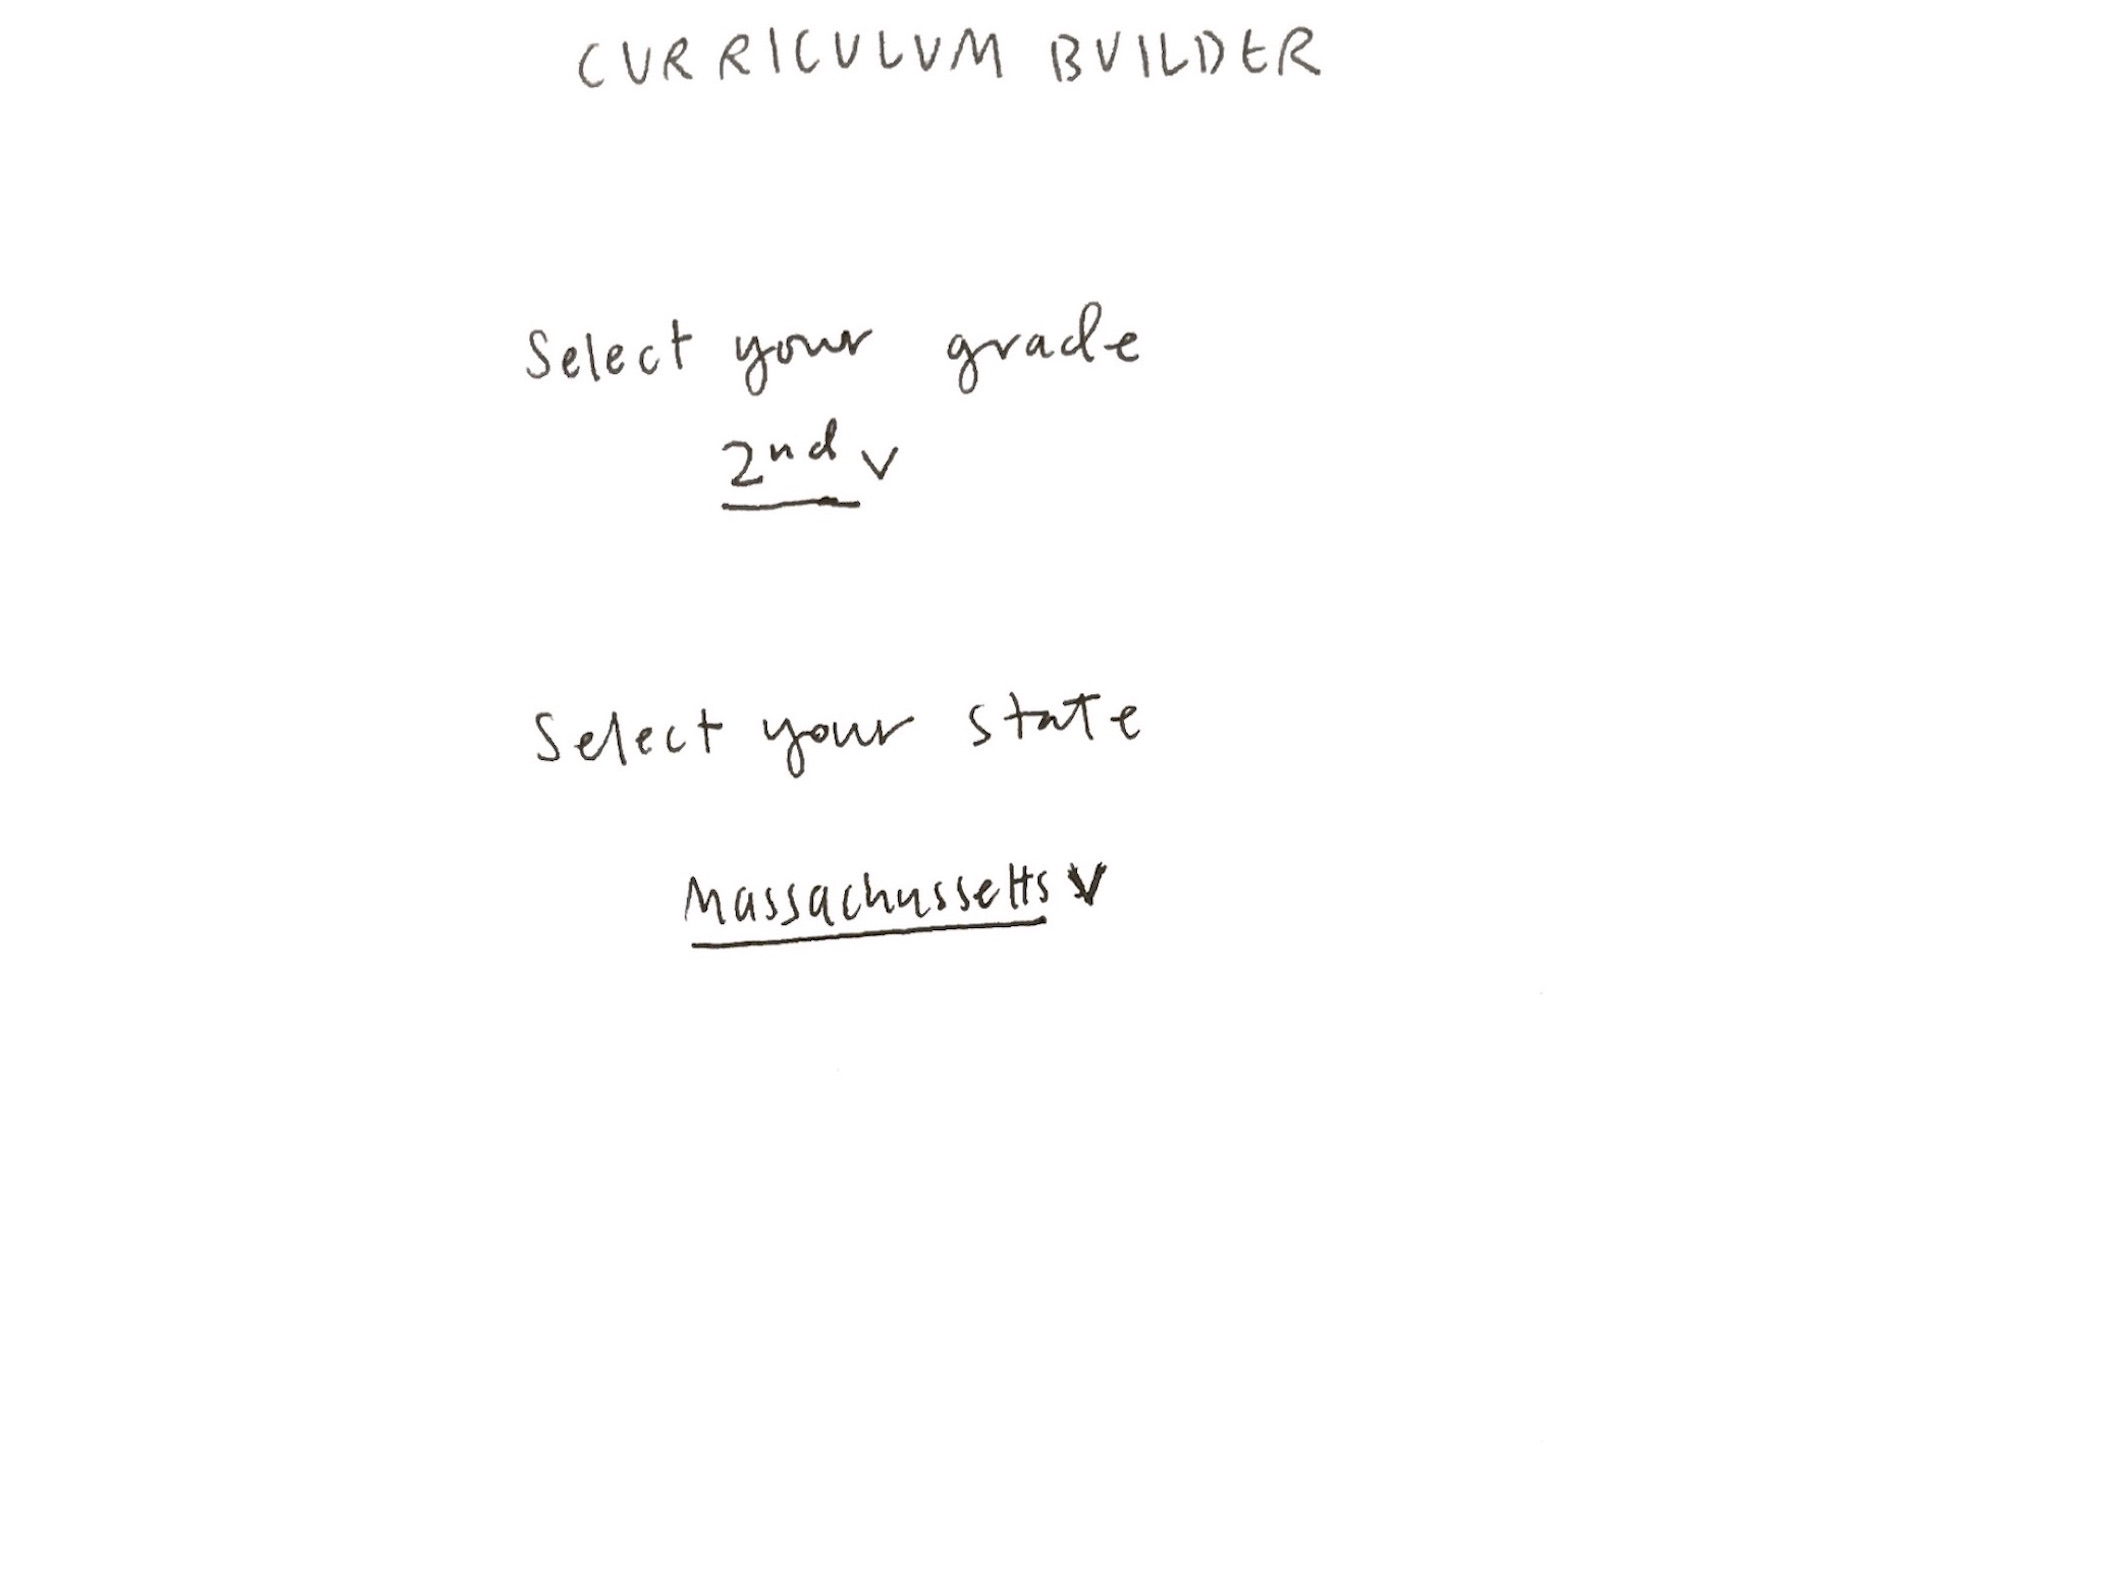 CURRICULUM BUILDER
Select your grade
2nd v
Select your state
Massachussetts v